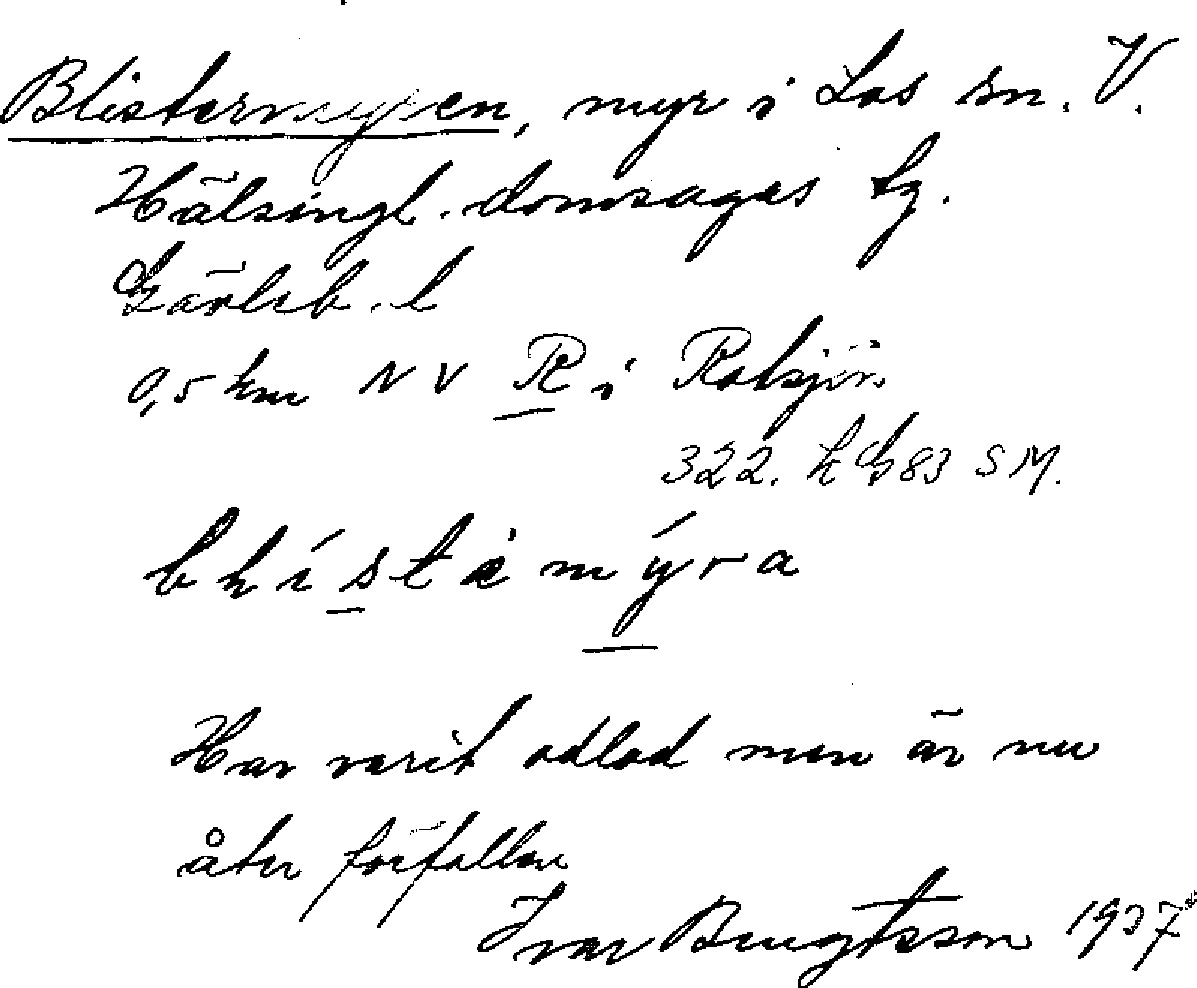 Blistermyren, myr i Los sn. V.
Hälsingl. domsagas tg.
Gävleb. l
0,5 km NV R i Rotsjön
322. kG83 SM.
bhístámýra
Har varit odlad men är nu
åter förfallen
Ivar Bengtsson 1937